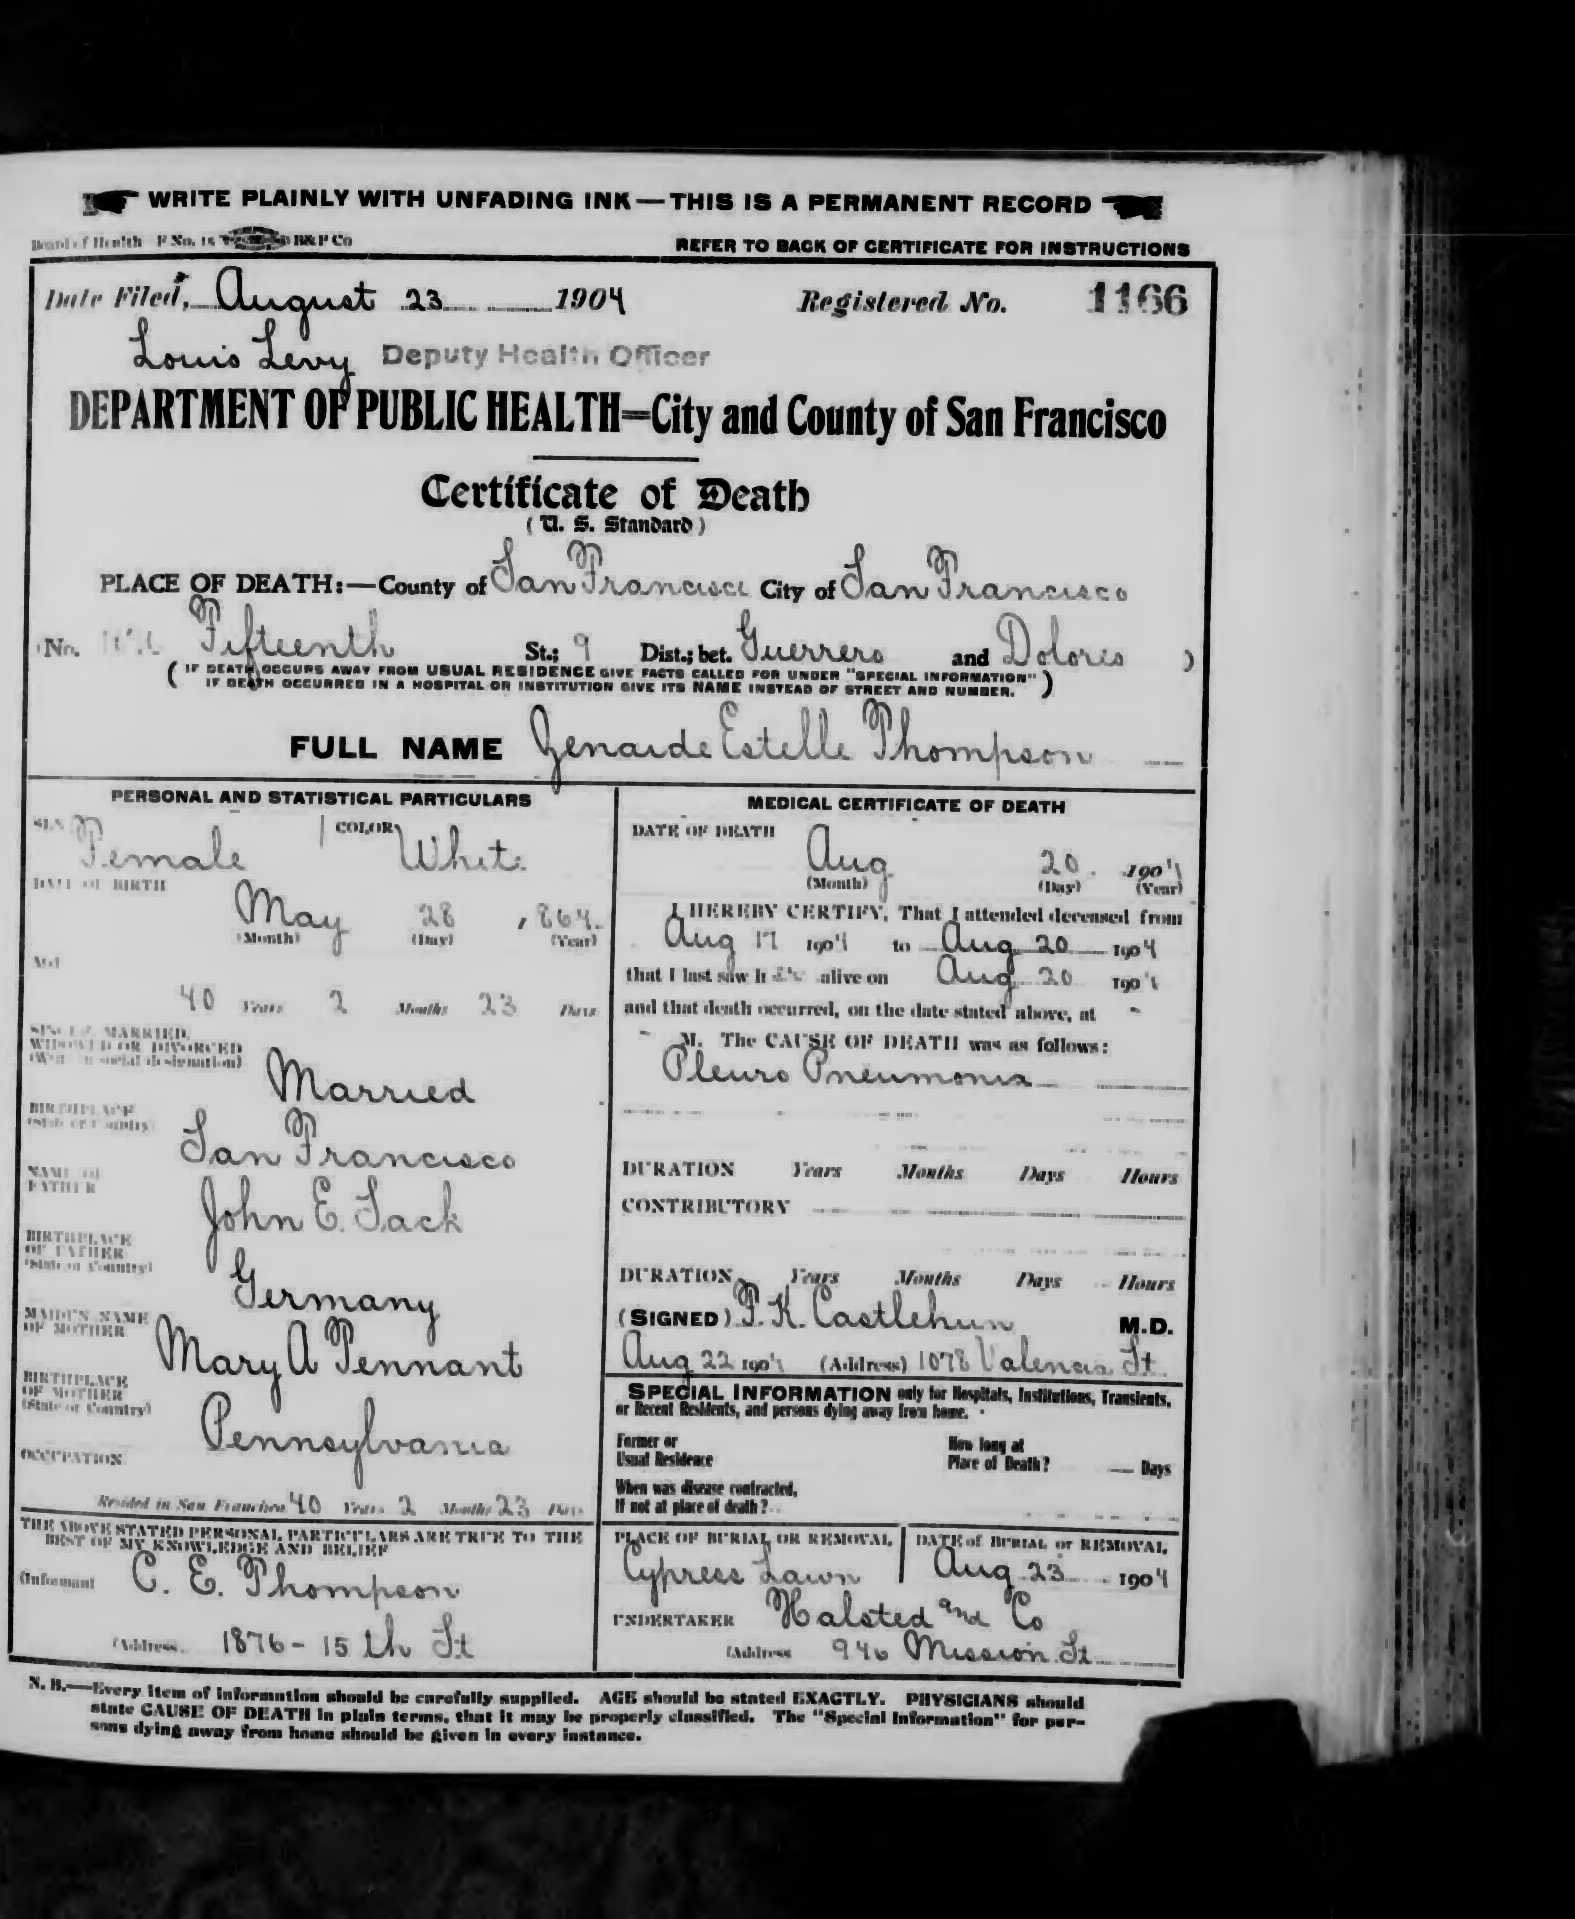 WRITE PLAINLY WITH UNFADING INK — THIS IS A PERMANENT RECORD
Board of Health F No. 15 B&P Co REFER TO BACK OF CERTIFICATE FOR INSTRUCTIONS
Date Filed, August 23 1904 Registered No. 1166
Louis Levy Deputy Health Officer
DEPARTMENT OF PUBLIC HEALTH=City and County of San Francisco
Certificate of Death
(U. S. Standard)
PLACE OF DEATH:—County of San Francisco City of San Francisco
(No. Fifteenth St.; 9 Dist.; bet. Guerrero and Dolores )
( IF DEATH OCCURS AWAY FROM USUAL RESIDENCE GIVE FACTS CALLED FOR UNDER "SPECIAL INFORMATION"
IF DEATH OCCURRED IN A HOSPITAL OR INSTITUTION GIVE ITS NAME INSTEAD OF STREET AND NUMBER. )
FULL NAME Zenaide Estelle Thompson
PERSONAL AND STATISTICAL PARTICULARS
SEX Female COLOR White
DATE OF BIRTH
May 28 , 864
(Month) (Day) (Year)
AGE
40 Years 2 Months 23 Days
SINGLE, MARRIED,
WIDOWED OR DIVORCED
(Write in social designation)
Married
BIRTHPLACE
(State or Country)
San Francisco
NAME OF
FATHER
John E. Sack
BIRTHPLACE
OF FATHER
(State or Country)
Germany
MAIDEN NAME
OF MOTHER
Mary A Pennant
BIRTHPLACE
OF MOTHER
(State or Country)
Pennsylvania
OCCUPATION
Resided in San Francisco 40 Years 2 Months 23 Days
THE ABOVE STATED PERSONAL PARTICULARS ARE TRUE TO THE
BEST OF MY KNOWLEDGE AND BELIEF
(Informant C. E. Thompson
(Address 1876 - 15 th St
MEDICAL CERTIFICATE OF DEATH
DATE OF DEATH
Aug 20 1904
(Month) (Day) (Year)
I HEREBY CERTIFY, That I attended deceased from
Aug 17 1904 to Aug 20 1904
that I last saw h er alive on Aug 20 1904
and that death occurred, on the date stated above, at
M. The CAUSE OF DEATH was as follows:
Pleuro Pneumonia
DURATION Years Months Days Hours
CONTRIBUTORY
DURATION Years Months Days Hours
(SIGNED) F. K. Castlehun M.D.
Aug 22 1904 (Address) 1078 Valencia St.
SPECIAL INFORMATION only for Hospitals, Institutions, Transients,
or Recent Residents, and persons dying away from home.
Former or
Usual Residence
How long at
Place of Death? Days
When was disease contracted,
If not at place of death?
PLACE OF BURIAL OR REMOVAL
Cypress Lawn
DATE of BURIAL or REMOVAL
Aug 23 1904
UNDERTAKER Halsted and Co
(Address 946 Mission St
N. B.—Every item of information should be carefully supplied. AGE should be stated EXACTLY. PHYSICIANS should
state CAUSE OF DEATH in plain terms, that it may be properly classified. The "Special Information" for per-
sons dying away from home should be given in every instance.